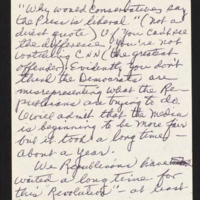 "Why would Conservatives say
the Press is liberal" (not a
direct quote) If you can't see
the difference, you're not
watching CNN (the greatest
offender) Evidently you don't
think the Democrats are
misrepresenting what the Re-
publicans are trying to do.
I will admit that the media
is beginning to be more fair
but it took a long time -
about a year.
We Republicans have
waited a long time for
this "Revolution" - at least